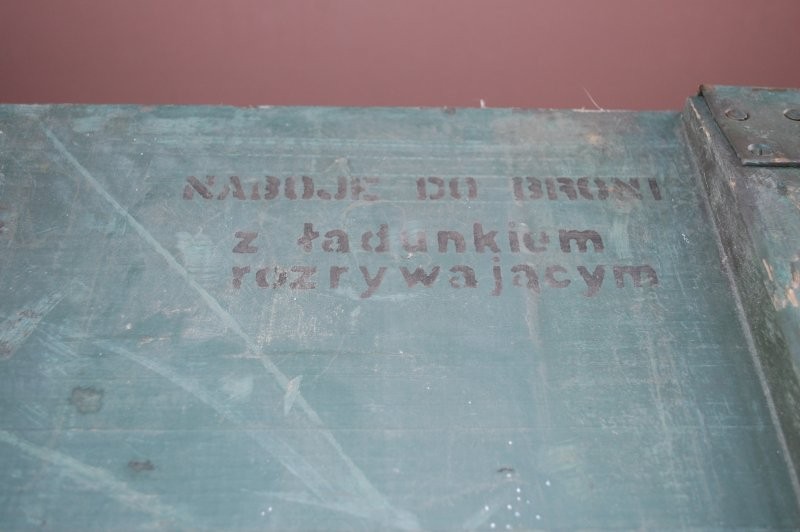 NABOJE DO BRONI
z ładunkiem
rozrywającym